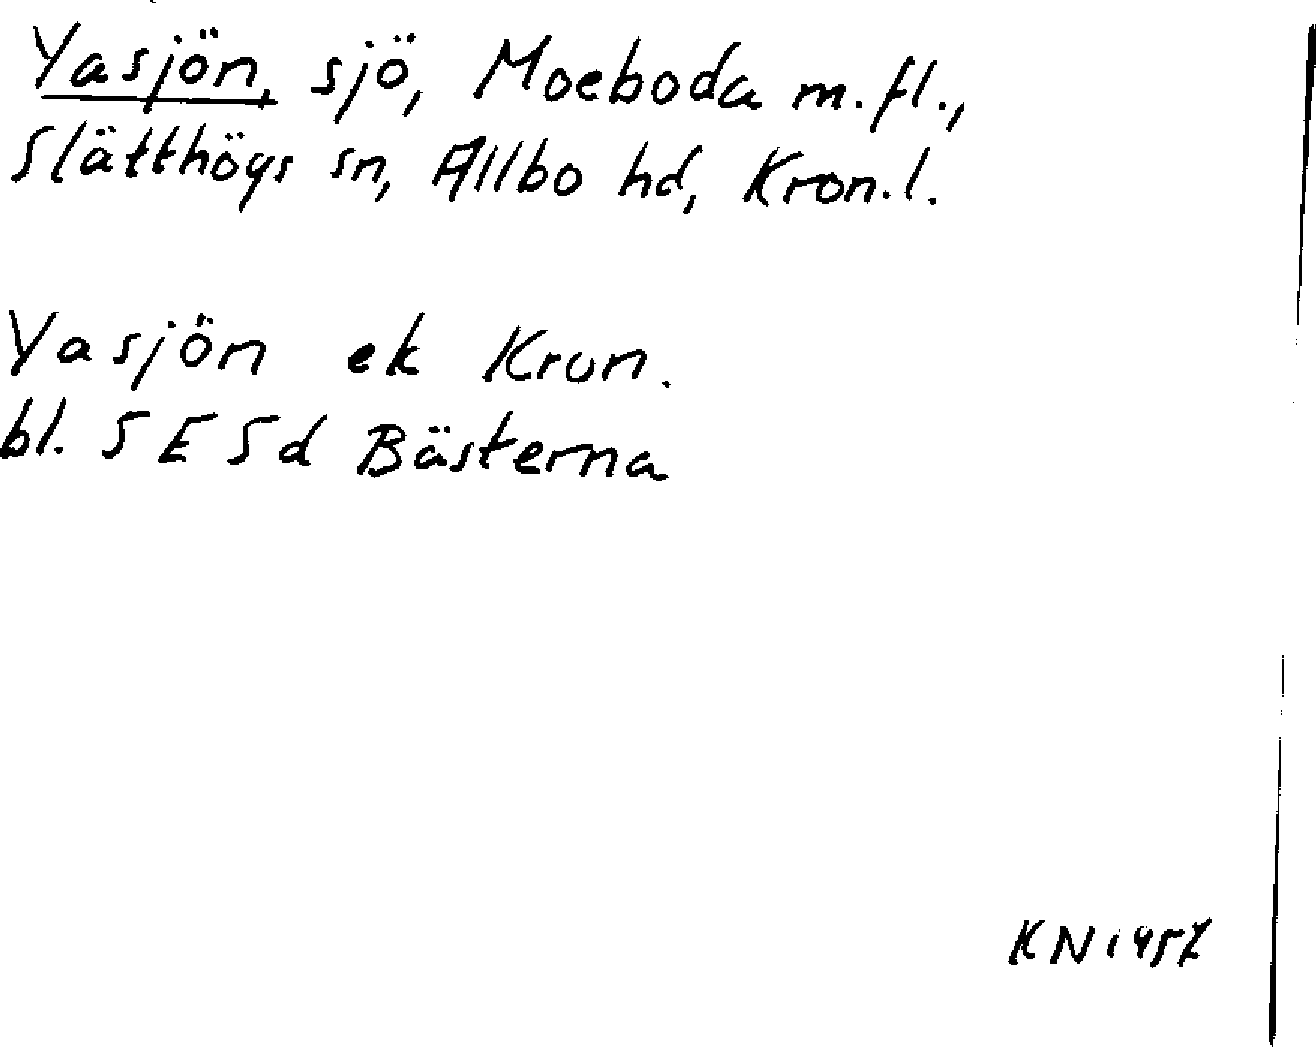 Yasjön, sjö, Moeboda m.fl.,
Slätthögs sn, Allbo hd, Kron.l.
Yasjön ek Kron.
bl. 5 E 5 d Bästerna
KN 1957